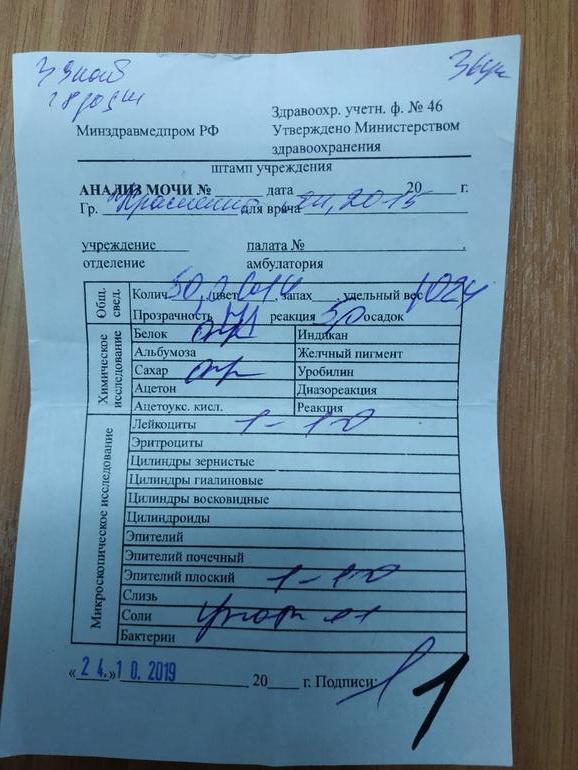 Здравоохр. учетн. ф. № 46
Минздравмедпром РФ Утверждено Министерством
здравоохранения
штамп учреждения
АНАЛИЗ МОЧИ № дата 20 г.
Гр. для врача
учреждение палата №
отделение амбулатория
Общ. свед.
Колич. 50,0 цвет с/ж, запах , удельный вес 1024
Прозрачность реакция 5,0 осадок
Химическое исследование
Белок отр Индикан
Альбумоза Желчный пигмент
Сахар отр Уробилин
Ацетон Диазореакция
Ацетоукс. кисл. Реакция
Микроскопическое исследование
Лейкоциты 1-1-0
Эритроциты
Цилиндры зернистые
Цилиндры гиалиновые
Цилиндры восковидные
Цилиндроиды
Эпителий
Эпителий почечный
Эпителий плоский 1-1-0
Слизь
Соли
Бактерии
«24.»10.2019 20 г. Подписи:
1